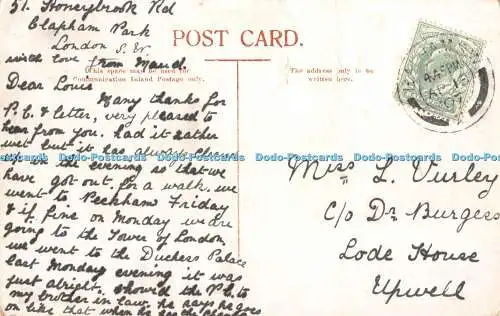 51. Honeybrook Rd
Clapham Park
London S.W.
with love from Maud.
POST CARD.
This space may be used for
Communication Inland Postage only.
The address only to be
written here.
Dear Louis
Many thanks for
P.C. & letter, very pleased to
hear from you. had it rather
wet but it has always been
in the evening so that we
have got out for a walk. we
went to Peckham Friday
& if fine on Monday we are
going to the Tower of London
we went to the Duchess Palace
last Monday evening it was
just alright. showed the P.C. to
my brother in law. he says he goes
on like that when he has the
Miss L. Vurley
C/o Dr Burgess
Lode House
Upwell
Dodo-Postcards Dodo-Postcards Dodo-Postcards Dodo-Postcards Dodo-Postcards Dodo-Postcards